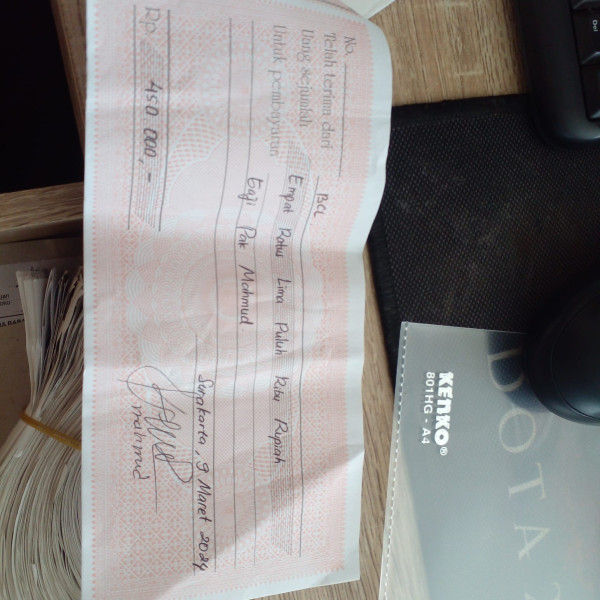 No.
Telah terima dari BCL
Uang sejumlah Empat Ratus Lima Puluh Ribu Rupiah
Untuk pembayaran Gaji Pak Mahmud
Surakarta, 9 Maret 2024
Rp. 450 000,-
mahmud
KENKO®
801HG - A4
DOTA 2
Del